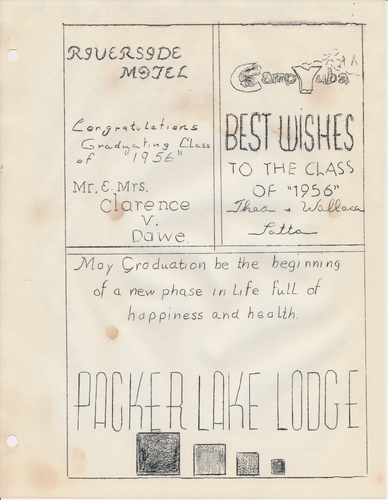 RIVERSIDE
MOTEL
Congratulations
Graduating Class
of "1956"
Mr. & Mrs.
Clarence
V.
Dawe
Camp Yuba
BEST WISHES
TO THE CLASS
OF "1956"
Thea + Wallace
Potts
May Graduation be the beginning
of a new phase in Life full of
happiness and health.
PACKER LAKE LODGE